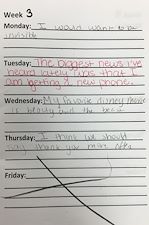 Week 3
Monday: I would want to be
invisible
Tuesday: The biggest news I've
heard lately was that I
am getting a new phone.
Wednesday: My favorite disney movie
is beauty and the beast
Thursday: I think we should
say thank you more often
Friday: